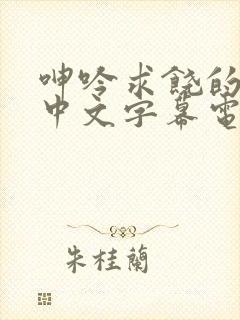 呻吟求饶的
中文字幕電
朱桂蘭